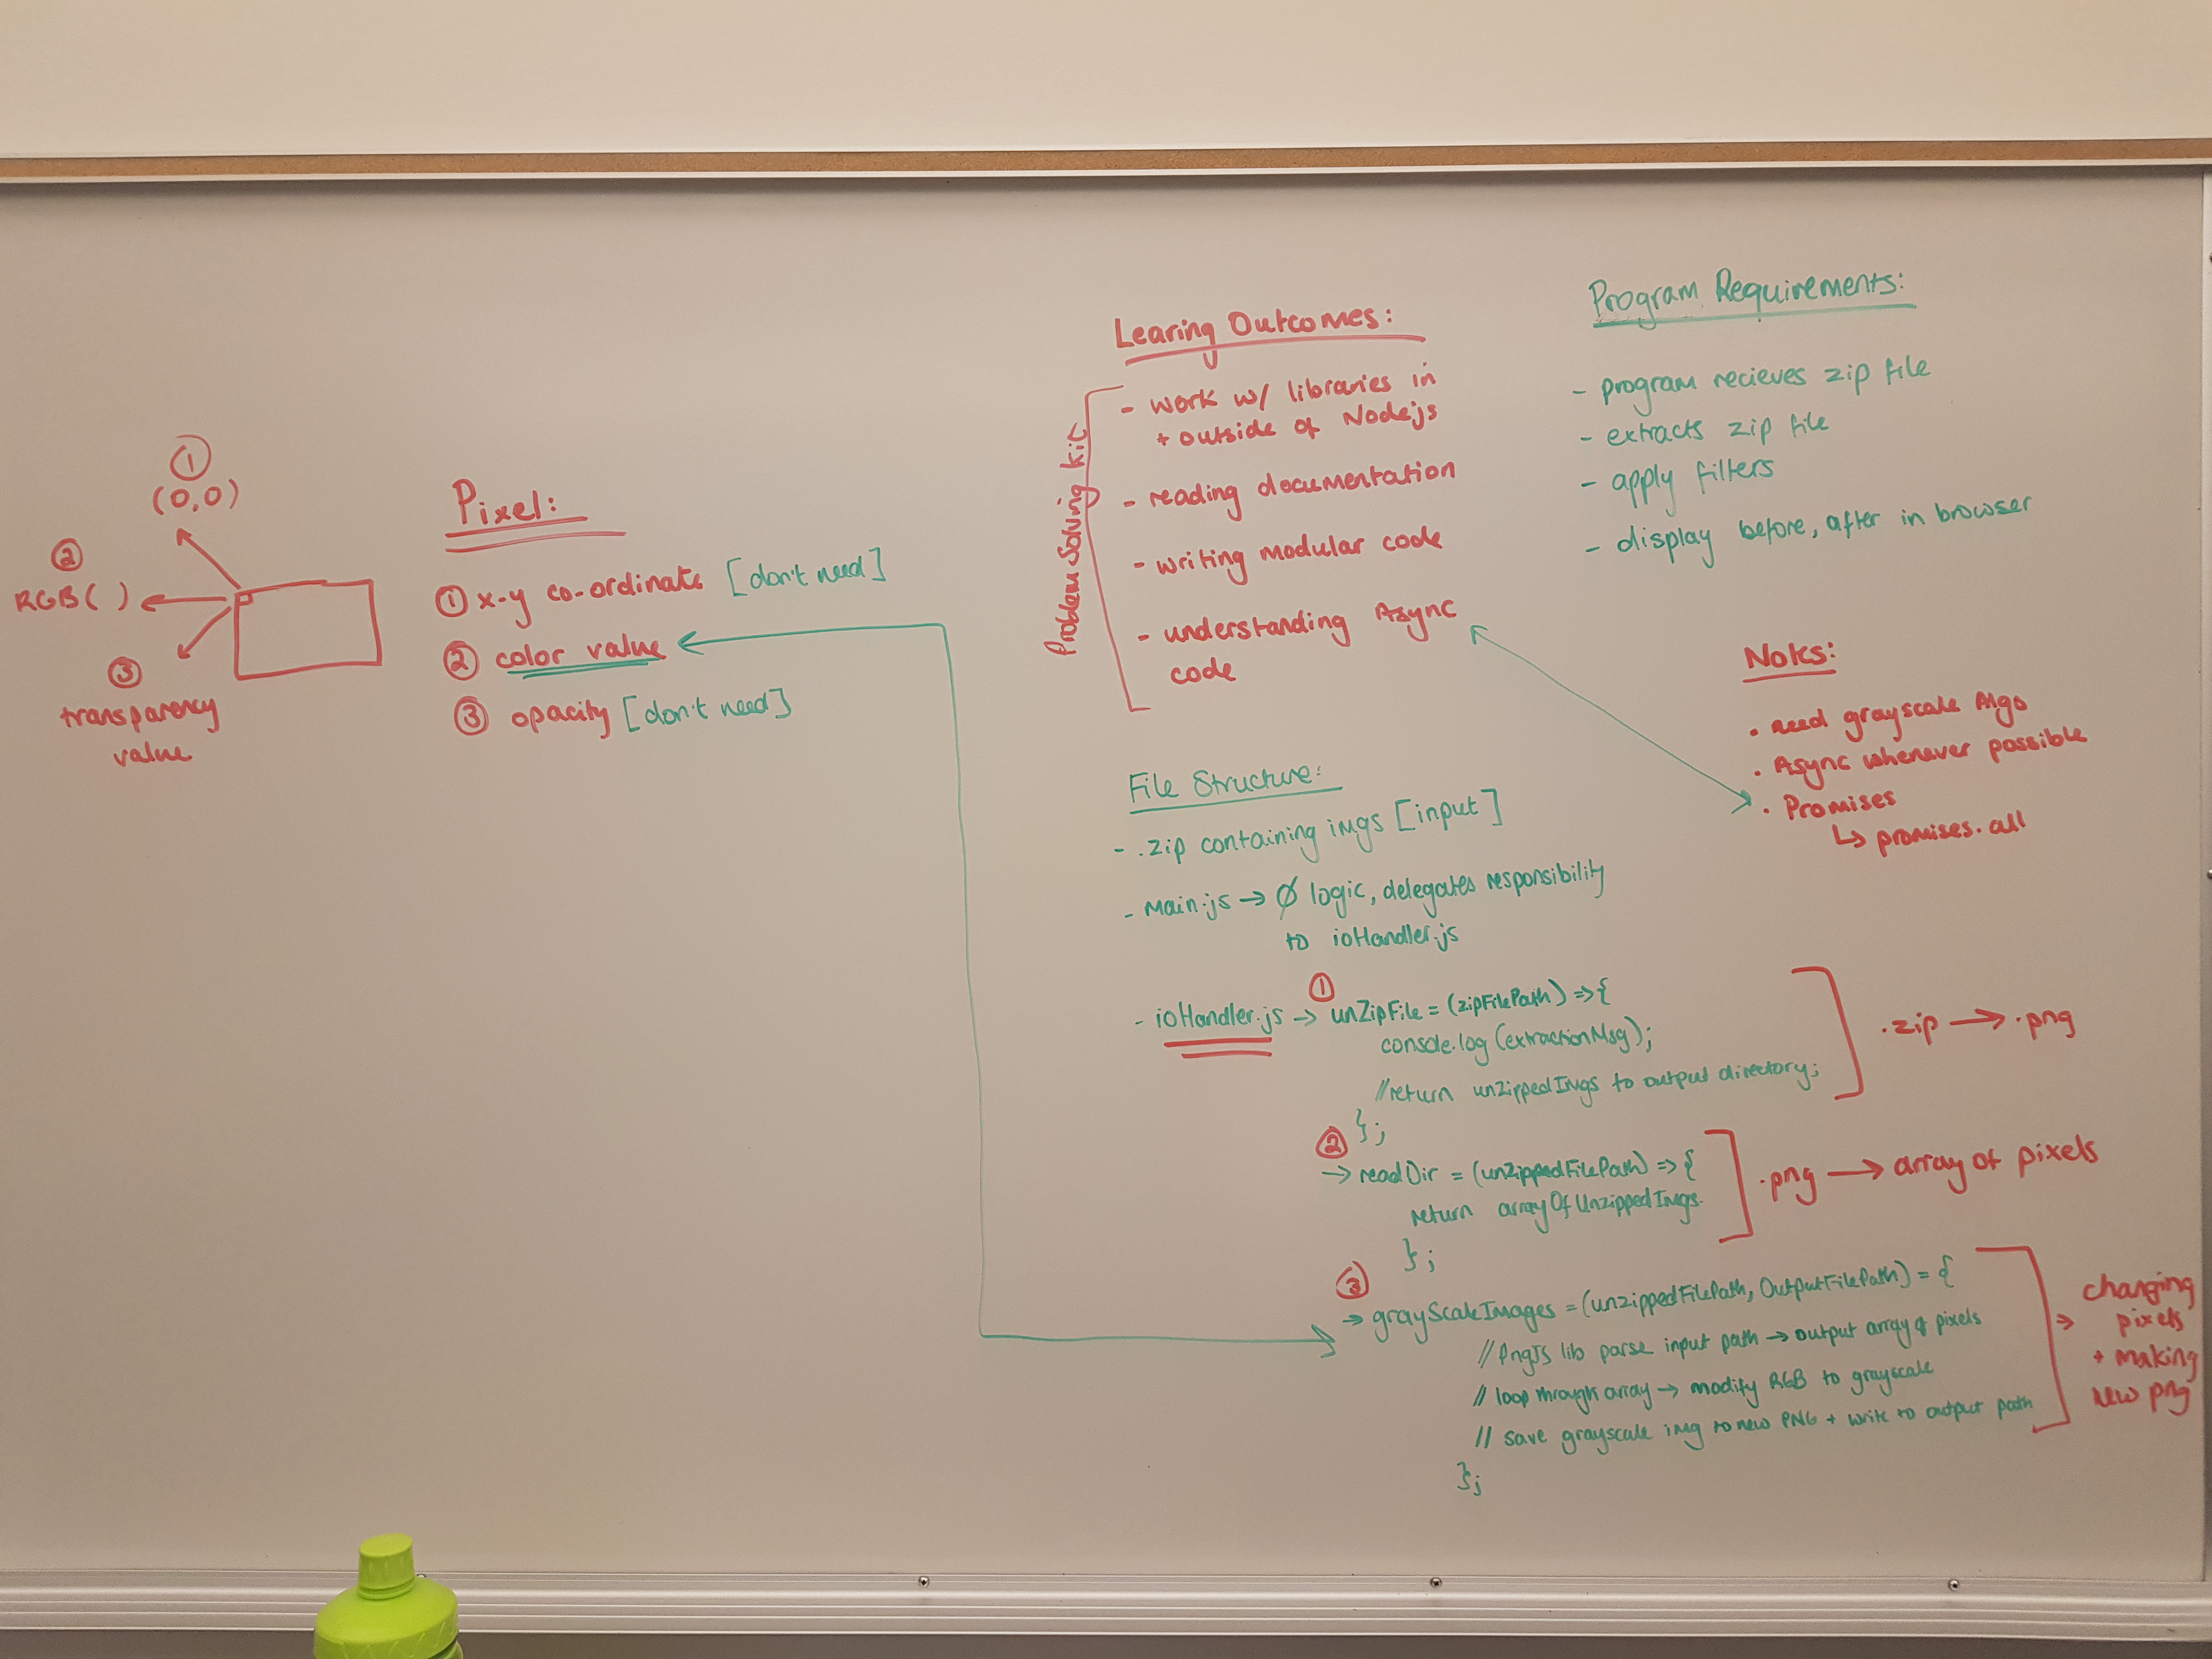 ①
(0,0)
②
RGB( )
③
transparency
value
Pixel:
① x-y co-ordinate [don't need]
② color value
③ opacity [don't need]
Learing Outcomes:
Problem Solving kit
- work w/ libraries in
+ outside of Nodejs
- reading documentation
- writing modular code
- understanding Async
code
Program Requirements:
- program recieves zip file
- extracts zip file
- apply filters
- display before, after in browser
Notes:
• need grayscale Algo
• Async whenever possible
• Promises
↳ promises.all
File Structure:
- .zip containing imgs [input]
- Main.js → Ø logic, delegates responsibility
to ioHandler.js
- ioHandler.js → ① unZipFile = (zipFilePath) => {
console.log(extractionMsg);
//return unZippedImgs to output directory;
};
.zip → .png
②
→ readDir = (unZippedFilePath) => {
return arrayOfUnzippedImgs.
};
.png → array of pixels
③
→ grayScaleImages = (unzippedFilePath, OutputFilePath) = {
// PngJS lib parse input path → output array of pixels
// loop through array → modify RGB to grayscale
// save grayscale img to new PNG + write to output path
};
→ changing
pixels
+ making
new png